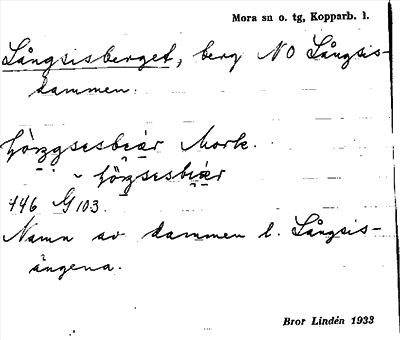 Mora sn o. tg, Kopparb. l.
Långsisberget, berg NO Långsis-
dammen.
Mork.
~
446 G 103.
Namn av dammen l. Långsis-
ängena.
Bror Lindén 1933